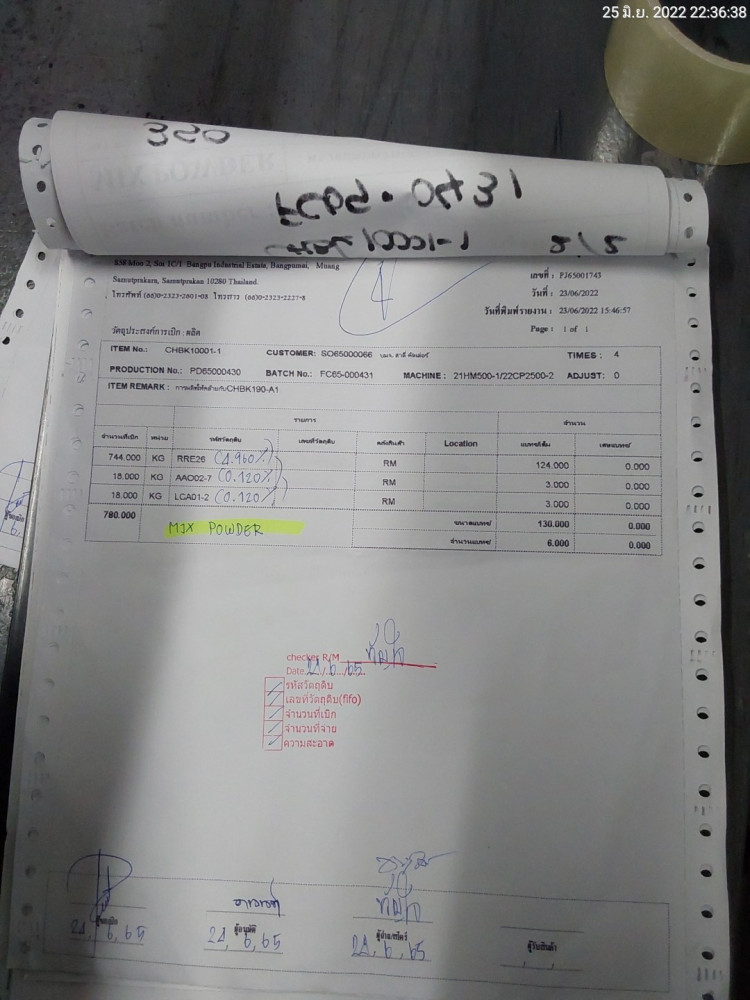 25 มิ.ย. 2022 22:36:38
320
RM Moo 2, Soi 1C/1 Bangpu Industrial Estate, Bangpumai, Muang
Samutprakarn, Samutprakan 10280 Thailand.
โทรศัพท์ (66)0-2323-2601-03 โทรสาร (66)0-2323-2227-8
เลขที่ : PJ65001743
วันที่ : 23/06/2022
วันที่พิมพ์รายงาน : 23/06/2022 15:46:57
Page : 1 of 1
วัตถุประสงค์การเบิก : ผลิต
ITEM No.: CHBK10001-1 CUSTOMER: SO65000066 TIMES : 4
PRODUCTION No.: PD65000430 BATCH No.: FC65-000431 MACHINE : 21HM500-1/22CP2500-2 ADJUST: 0
ITEM REMARK : การผลิตให้คล้ายกับCHBK190-A1
รายการ จำนวน
จำนวนที่เบิก หน่วย รหัสวัตถุดิบ เลขที่วัตถุดิบ คลังสินค้า Location แบทช์เต็ม เศษแบทช์
744.000 KG RRE26 (4.960%) RM 124.000 0.000
18.000 KG AAO02-7 (0.120%) RM 3.000 0.000
18.000 KG LCA01-2 (0.120%) RM 3.000 0.000
780.000 MIX POWDER ขนาดแบทช์ 130.000 0.000
จำนวนแบทช์ 6.000 0.000
checker R/M
Date 24/6/65
รหัสวัตถุดิบ
เลขที่วัตถุดิบ(fifo)
จำนวนที่เบิก
จำนวนที่จ่าย
ความสะอาด
24, 6, 65 24, 6, 65 24, 6, 65
ผู้ขอเบิก ผู้อนุมัติ ผู้จ่าย/สโตร์ ผู้รับสินค้า